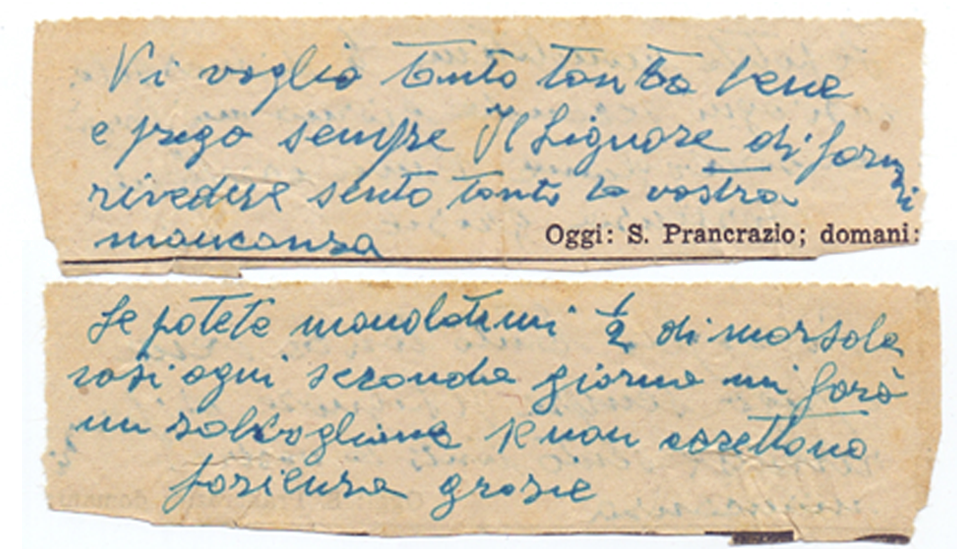 Vi voglio tanto tanto bene
e prego sempre Il Signore di farvi
rivedere sento tanto la vostra
mancanza
Oggi: S. Prancrazio; domani:
Se potete mandatemi ½ di marsala
così ogni seconda giorno mi farò
un se non accettano
pasienza grasie